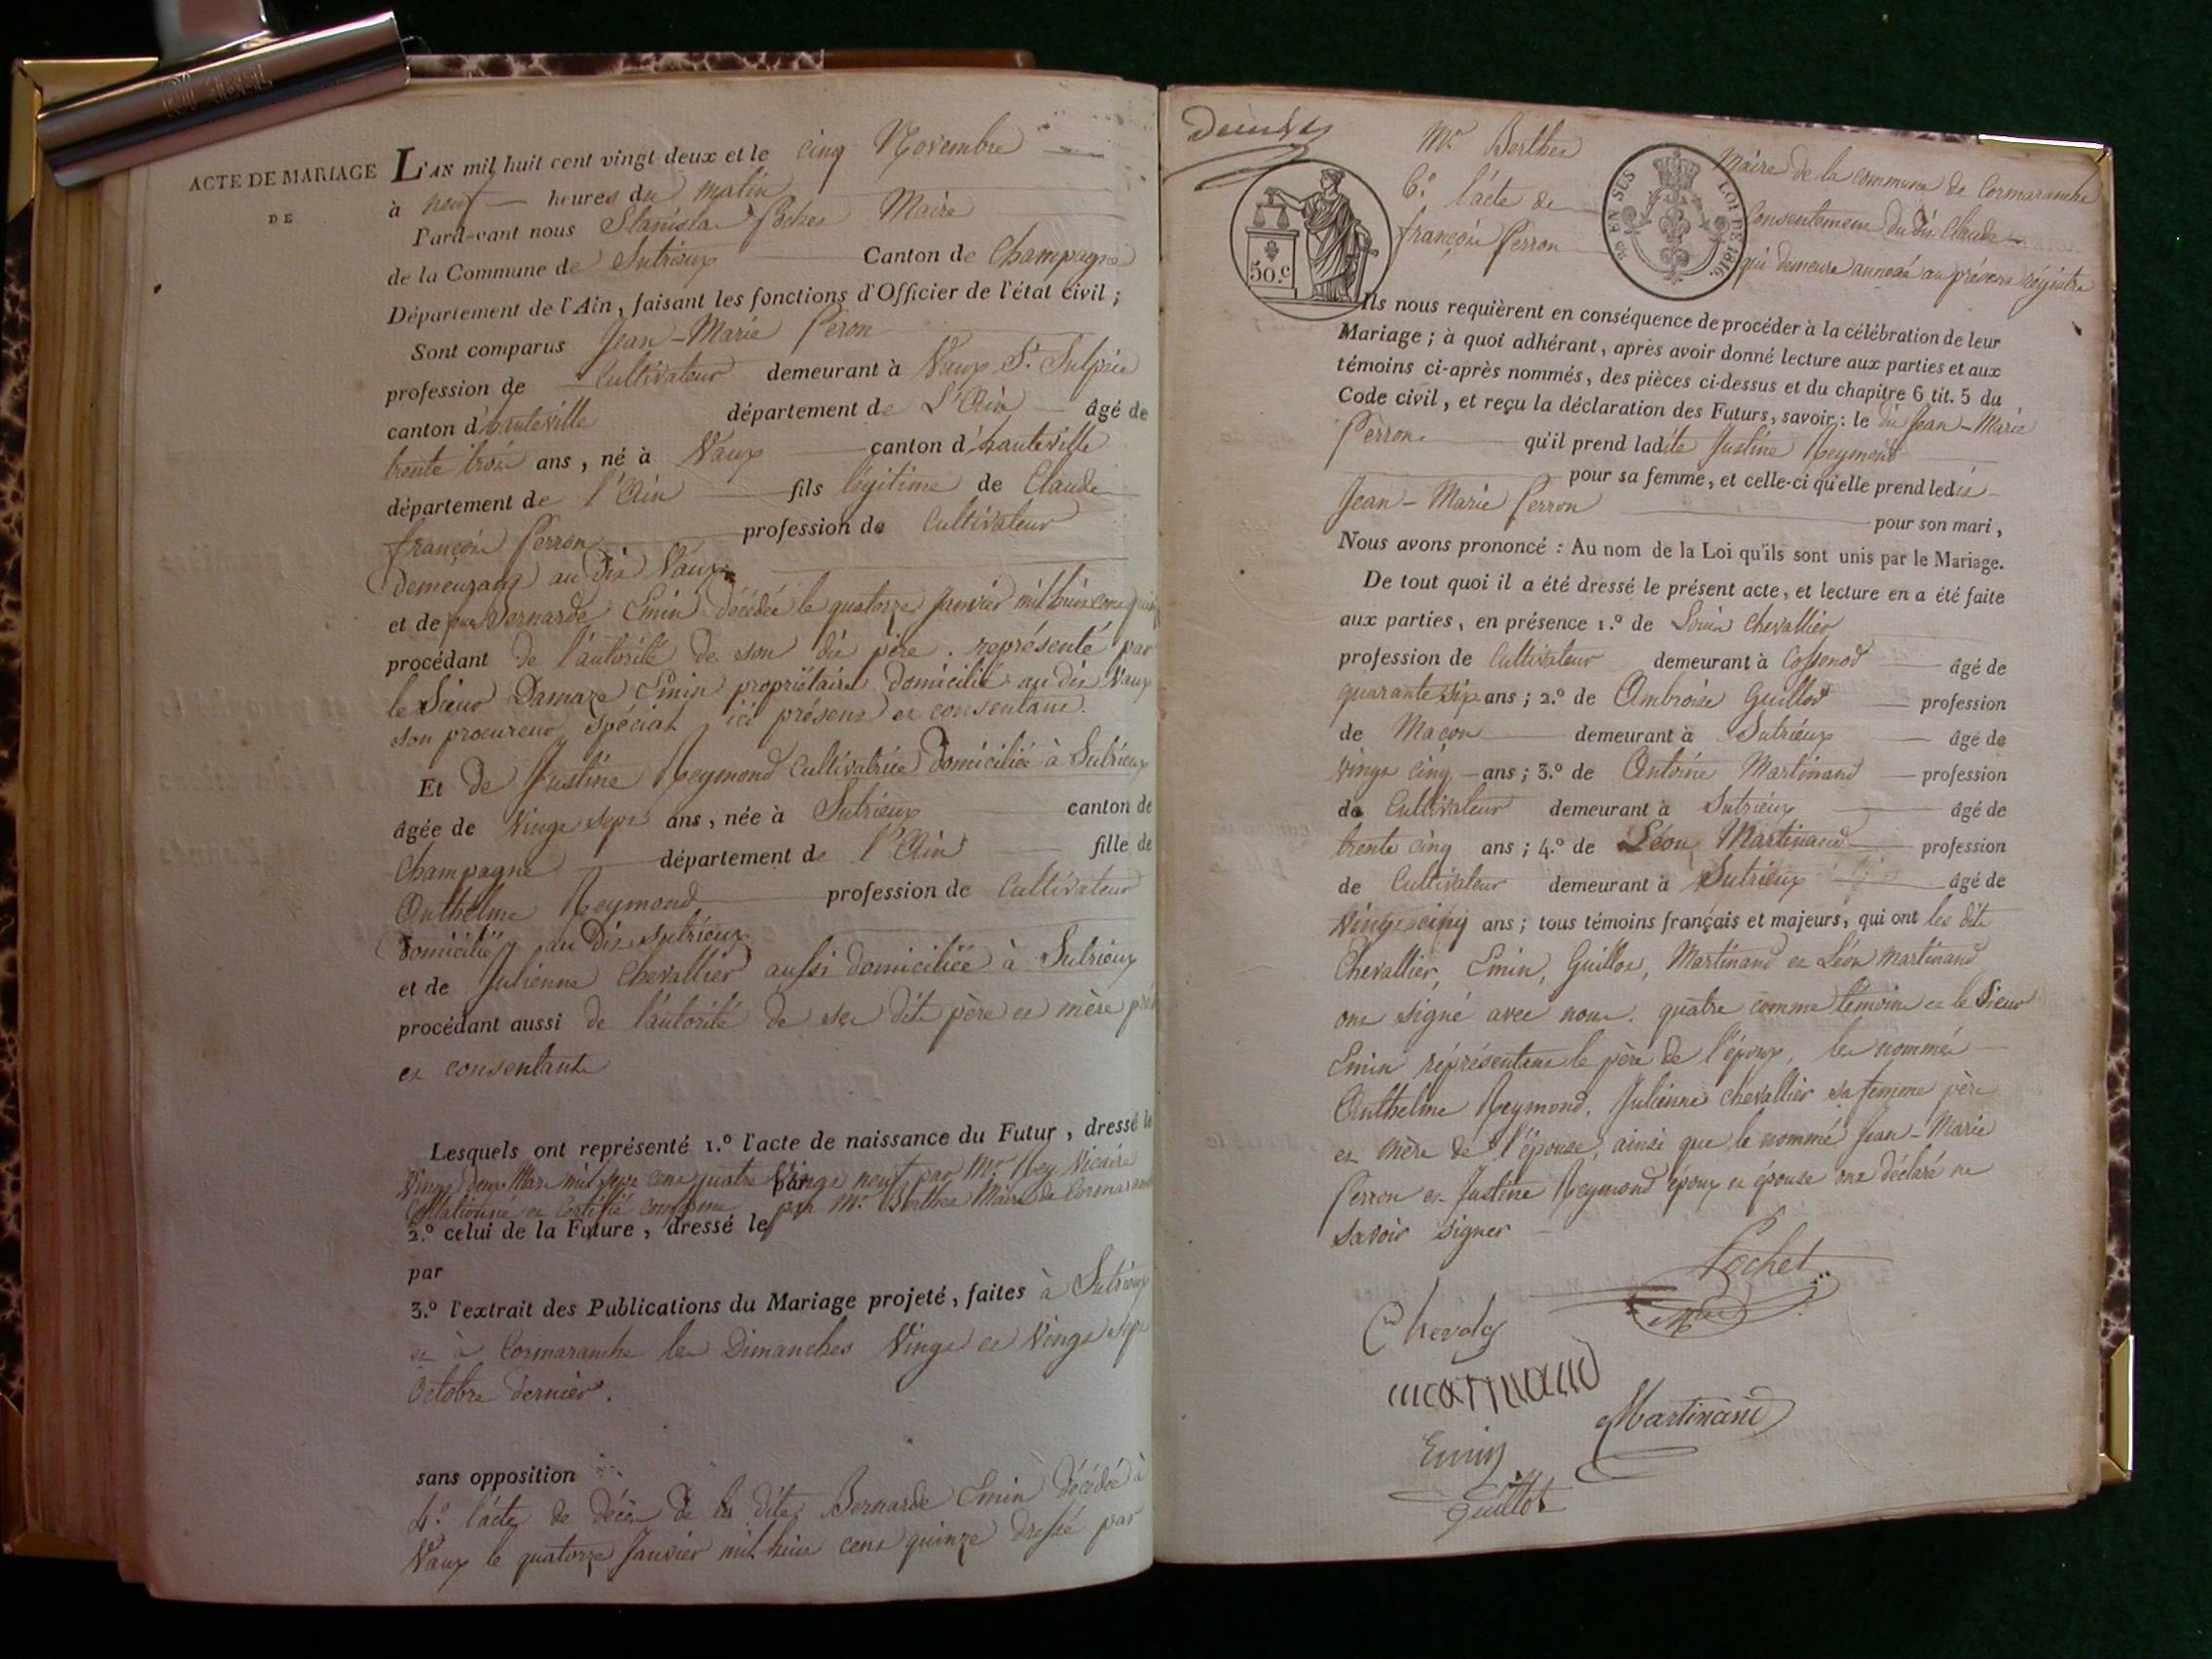 ACTE DE MARIAGE
DE
L'AN mil huit cent vingt deux et le cinq Novembre
à neuf heures du matin
Pard-vant nous Stanislas Pochet Maire
de la Commune de Sutrieux Canton de Champagne
Département de l'Ain, faisant les fonctions d'Officier de l'état civil ;
Sont comparus Jean-Marie Peron
profession de Cultivateur demeurant à Vaux St. Sulpice
canton d'hauteville département de L'Ain âgé de
trente trois ans, né à Vaux canton d'hauteville
département de l'Ain fils légitime de Claude
françois Perron profession de Cultivateur
demeurant au dit Vaux
et de feue Bernarde Emin décédée le quatorze Janvier mil huit cent
procédant de l'autorité de son dit père. représenté par
le Sieur Damaze Emin propriétaire domicilié au dit Vaux
son procureur spécial ici présent et consentant.
Et de Justine Reymond Cultivatrice domiciliée à Sutrieux
âgée de Vingt sept ans, née à Sutrieux canton de
Champagne département de l'Ain fille de
Anthelme Reymond profession de Cultivateur
domicilié au dit Sutrieux
et de Julienne Chevallier aussi domiciliée à Sutrieux
procédant aussi de l'autorité de ses dits père et mère
et consentants
Lesquels ont représenté 1.º l'acte de naissance du Futur, dressé le
Vingt deux Mars mil sept cent quatre Vingt neuf par Mr. Rey Vicaire
par
Collationné et Certifié conforme par Mr. Berthet Maire de Cormaranche
2.º celui de la Future, dressé le
par
3.º l'extrait des Publications du Mariage projeté, faites à Sutrieux
et à Cormaranche les Dimanches Vingt et Vingt sept
Octobre dernier.
sans opposition
4.º l'acte de décès de la dite Bernarde Emin décédée à
Vaux le quatorze Janvier mil huit cent quinze dressé par
Mr. Berthet Maire de la commune de Cormaranche
6.º l'acte de Consentement du dit Claude
françois Perron qui demeure annexé au présent régistre
50.c
EN SUS LOI DE 1816.
Ils nous requièrent en conséquence de procéder à la célébration de leur
Mariage ; à quoi adhérant, après avoir donné lecture aux parties et aux
témoins ci-après nommés, des pièces ci-dessus et du chapitre 6 tit. 5 du
Code civil, et reçu la déclaration des Futurs, savoir : le dit Jean-Marie
Perron qu'il prend ladite Justine Reymond
pour sa femme, et celle-ci qu'elle prend ledit
Jean-Marie Perron pour son mari,
Nous avons prononcé : Au nom de la Loi qu'ils sont unis par le Mariage.
De tout quoi il a été dressé le présent acte, et lecture en a été faite
aux parties, en présence 1.º de Louis Chevallier
profession de Cultivateur demeurant à Cossenod âgé de
quarante six ans ; 2.º de Ambroise Guillot profession
de Maçon demeurant à Sutrieux âgé de
vingt cinq ans ; 3.º de Antoine Martinand profession
de Cultivateur demeurant à Sutrieux âgé de
trente cinq ans ; 4.º de Léon Martinand profession
de Cultivateur demeurant à Sutrieux âgé de
Vingt cinq ans ; tous témoins français et majeurs, qui ont les dits
Chevallier, Emin, Guillot, Martinand et Léon Martinand
ont signé avec nous. quatre comme témoins et le Sieur
Emin représentant le père de l'époux, les nommés
Anthelme Reymond, Julienne Chevallier sa femme père
et mère de l'épouse, ainsi que le nommé Jean-Marie
Perron et Justine Reymond époux et épouse ont déclaré ne
savoir signer
Pochet
Mre
martinand
Martinand
Emin
guillot